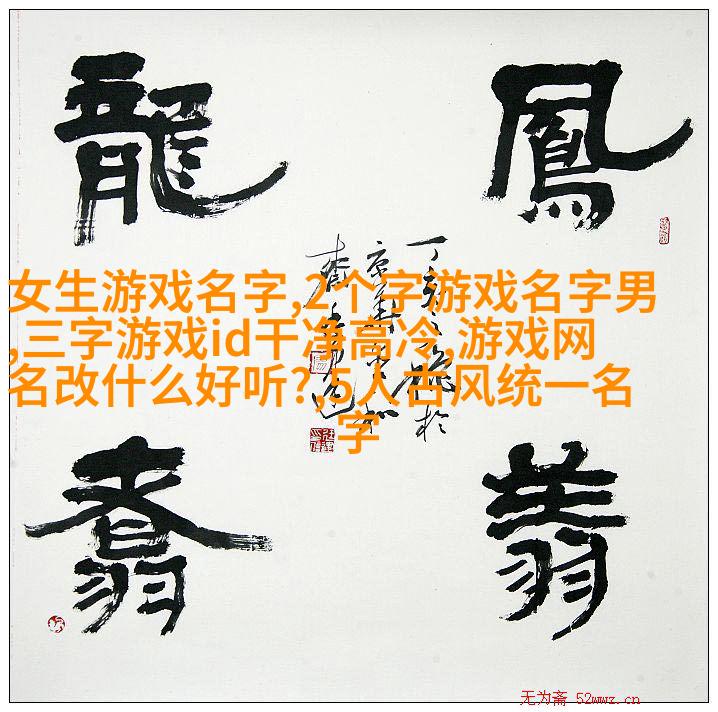 鳳翔
龍翥
丁亥之
京華
女生游戏名字,2个字游戏名字男
,三字游戏id干净高冷,游戏网
名改什么好听?,5人古风统一名
字
无为斋 52wwz.cn